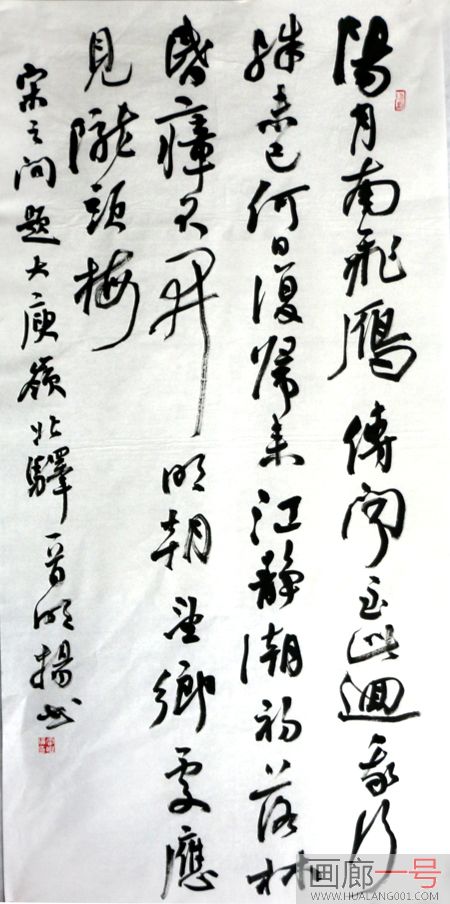 陽月南飛鴈傳聞至此迴我行
殊未已何日復歸来江靜潮初落林
昬瘴不開明朝望鄉處應
見隴頭梅
宋之問題大庾嶺北驛一首明揚书
画廊一号
WWW.HUALANG001.COM